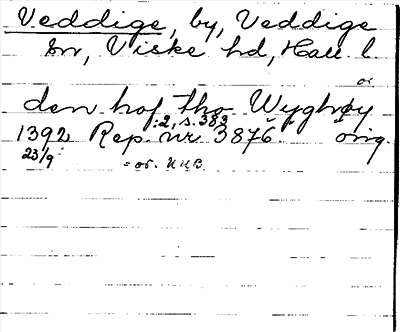 Veddige, by, Veddige
sn, Viske hd, Hall. l
or
den hof tho Wyghøy
:2, s. 383
1392 Rep. nr 3876. orig.
23/9 = or. UUB.